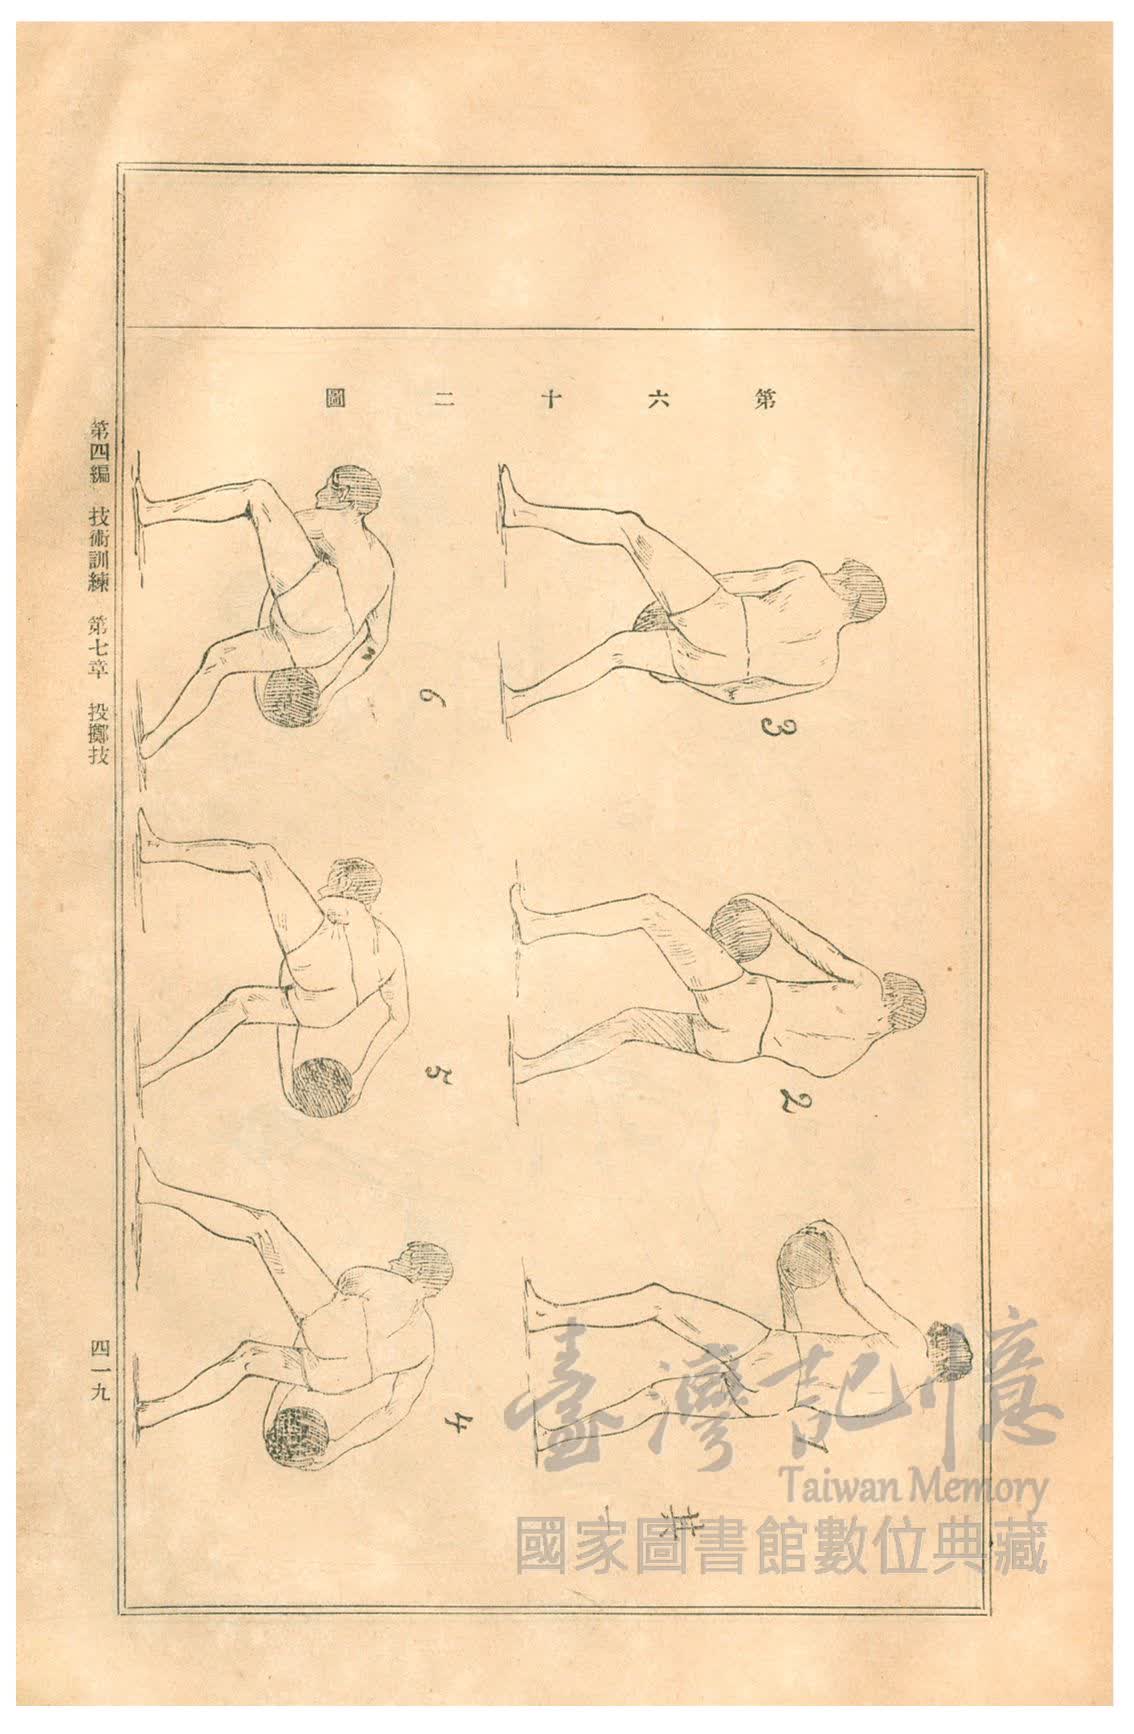 第六十二圖
3
2
1
6
5
4
其一
第四編 技術訓練 第七章 投擲技
四一九
臺灣記憶
Taiwan Memory
國家圖書館數位典藏